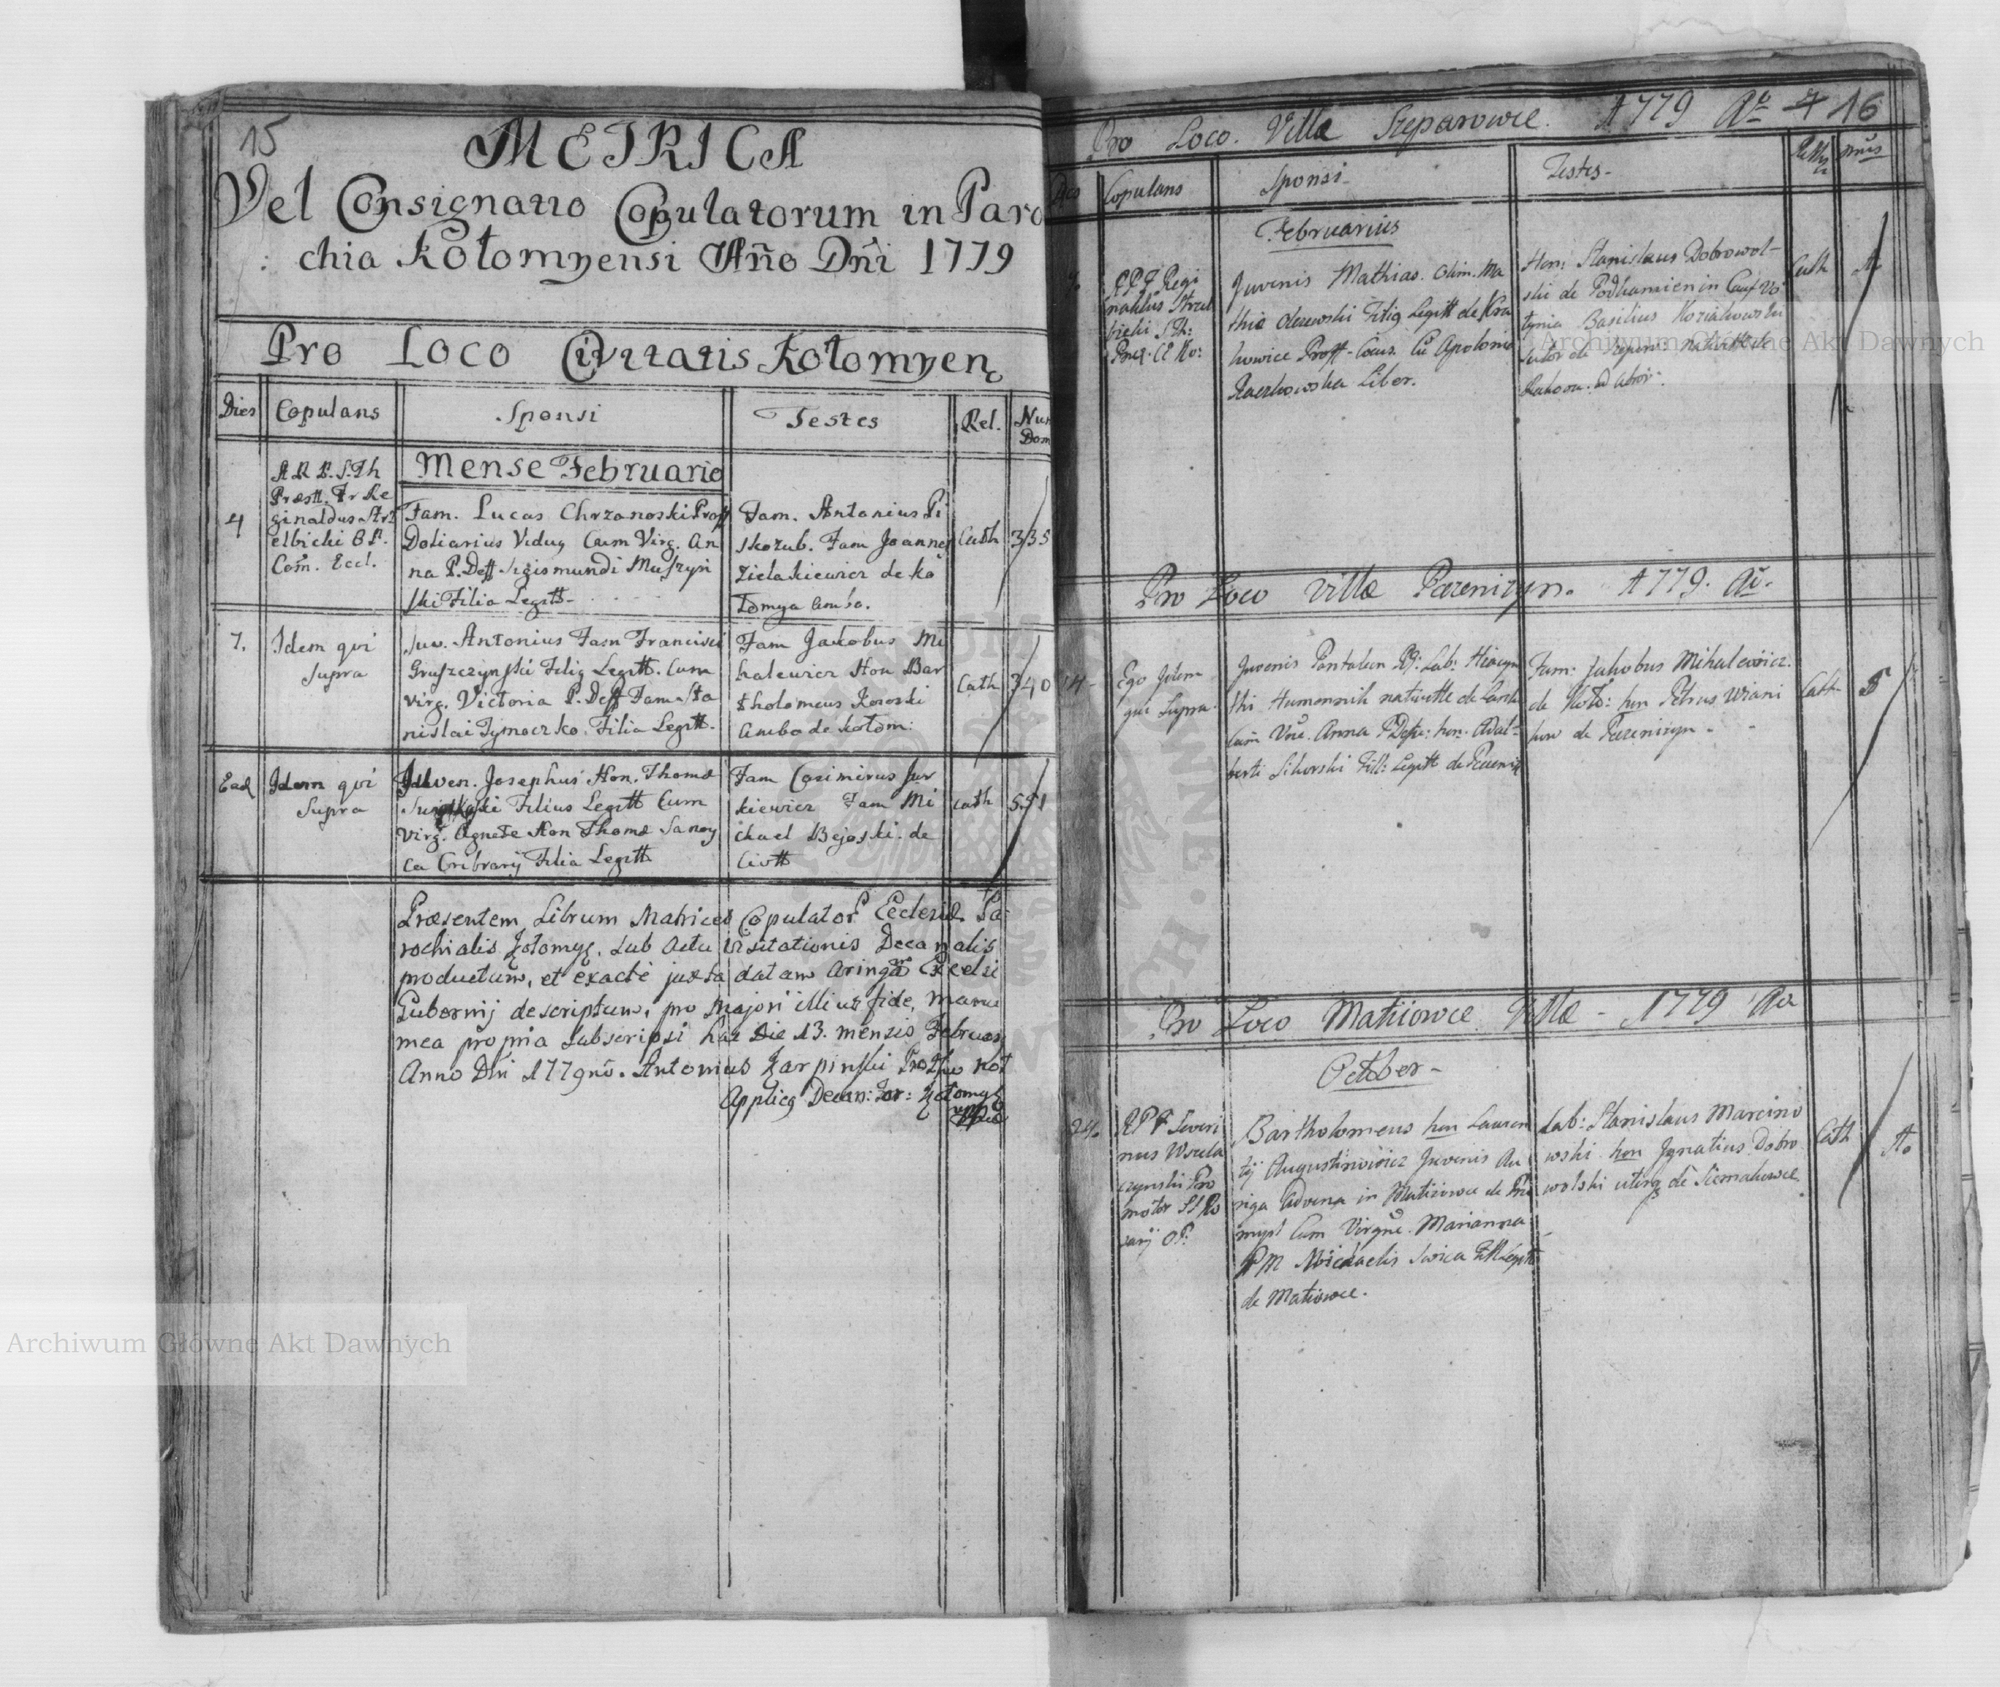 15
METRICA
Vel Consignatio Copulatorum in Paro
chia Kołomyensi Año Dñi 1779
Pro Loco Civitatis Kołomyen
Dies Copulans Sponsi Testes Rel. Num Dom
Mense Februario
4
A R P. S. Th
Præstt. Fr Re
ginaldus Strz
elbicki O P.
Com. Eccl.
Fam. Lucas Chrzanoski Proff
Doliarius Viduq Cum Virg. An
na P. Deff Sigismundi Muszyń
ski Filia Legitt
Fam. Antonius Pi
skozub. Fam Joannes
Zielakiewicz de Ko
łomya ambo.
Cath
335
7.
Idem qvi
supra
Juv. Antonius Fam Francisci
Gruszczynski Filiq Legitt. Cum
Virg. Victoria P. Deff Fam. Sta
nislai Tymoczko. Filia Legitt.
Fam Jacobus Mi
halewicz Hon Bar
tholomeus Kozoski
ambo de Kołom:
Cath
340
Ead
Idem qvi
Supra
Juven. Josephus Hon. Thomæ
Filius Legitt Cum
Virg. Agnete Hon Thomæ Sanoy
ca Cribrarij Filia Legitt
Fam Casimirus Jur
kiewicz Fam Mi
chael Bejoski. de
Civtt
Cath
551
Præsentem Librum Matrices Copulator Ecclesiæ Pa
rochialis Kołomyę. sub actu Visitationis Decanalis
productum, et exactè juxta datam aringam Excelsi
Gubernij descriptum, pro Majori illius fide, manu
mea propria subscripsi hac Die 13. mensis Februar
Anno Dñi 1779nõ. Antonius Karpinski Protho Not
Applicq Decan: For: Kołomyę
mpria
Pro Loco. Villæ Szeparowce. 1779 Aº 7 16
Dies Copulans Sponsi Testes
Februarius
7.
R P F Regi
naldus Strzel
bicki S Th:
Juvenis Mathias. olim. Ma
thiæ Olszewski Filiq Legitt de Kra
kowice Proff- Cocus. Cu Apolonia
Raczkowska Liber.
Hon: Stanislaus Dobrowol-
ski de Podkamien in
Basilius Koziakowski
Sutor de Szepar:
Cath
Pro Loco Villæ Pereniżyn. 1779. Aõ.
14-
Ego Idem
qui Supra
Juvenis Pantaleon Lab: Hiacyn
thi Humennik
Cum Vne. Anna P Deff: hon. Adal-
berti Sikorski Fil: Legitt de
Fam: Jakobus Mihalewicz.
de Koło: hon Petrus Wiani
kow de Pereniżyn -
Cath
5
Pro Loco Matiiowce Villæ - 1779 Aõ
October -
24.
R P F Severi
nus Wscla
czynski Pro
motor SS Ro
sarij OP.
Bartholomeus hon Lauren
tij Augustinowicz Juvenis Au
riga Advena in Matiiowce de
mysl Cum Virgne. Marianna
P M Michaelis Swica Fill Legitt
de Matiowce.
Lab: Stanislaus Marcino
wski hon Ignatius Dobro
wolski uterq de Siemakowce
Cath